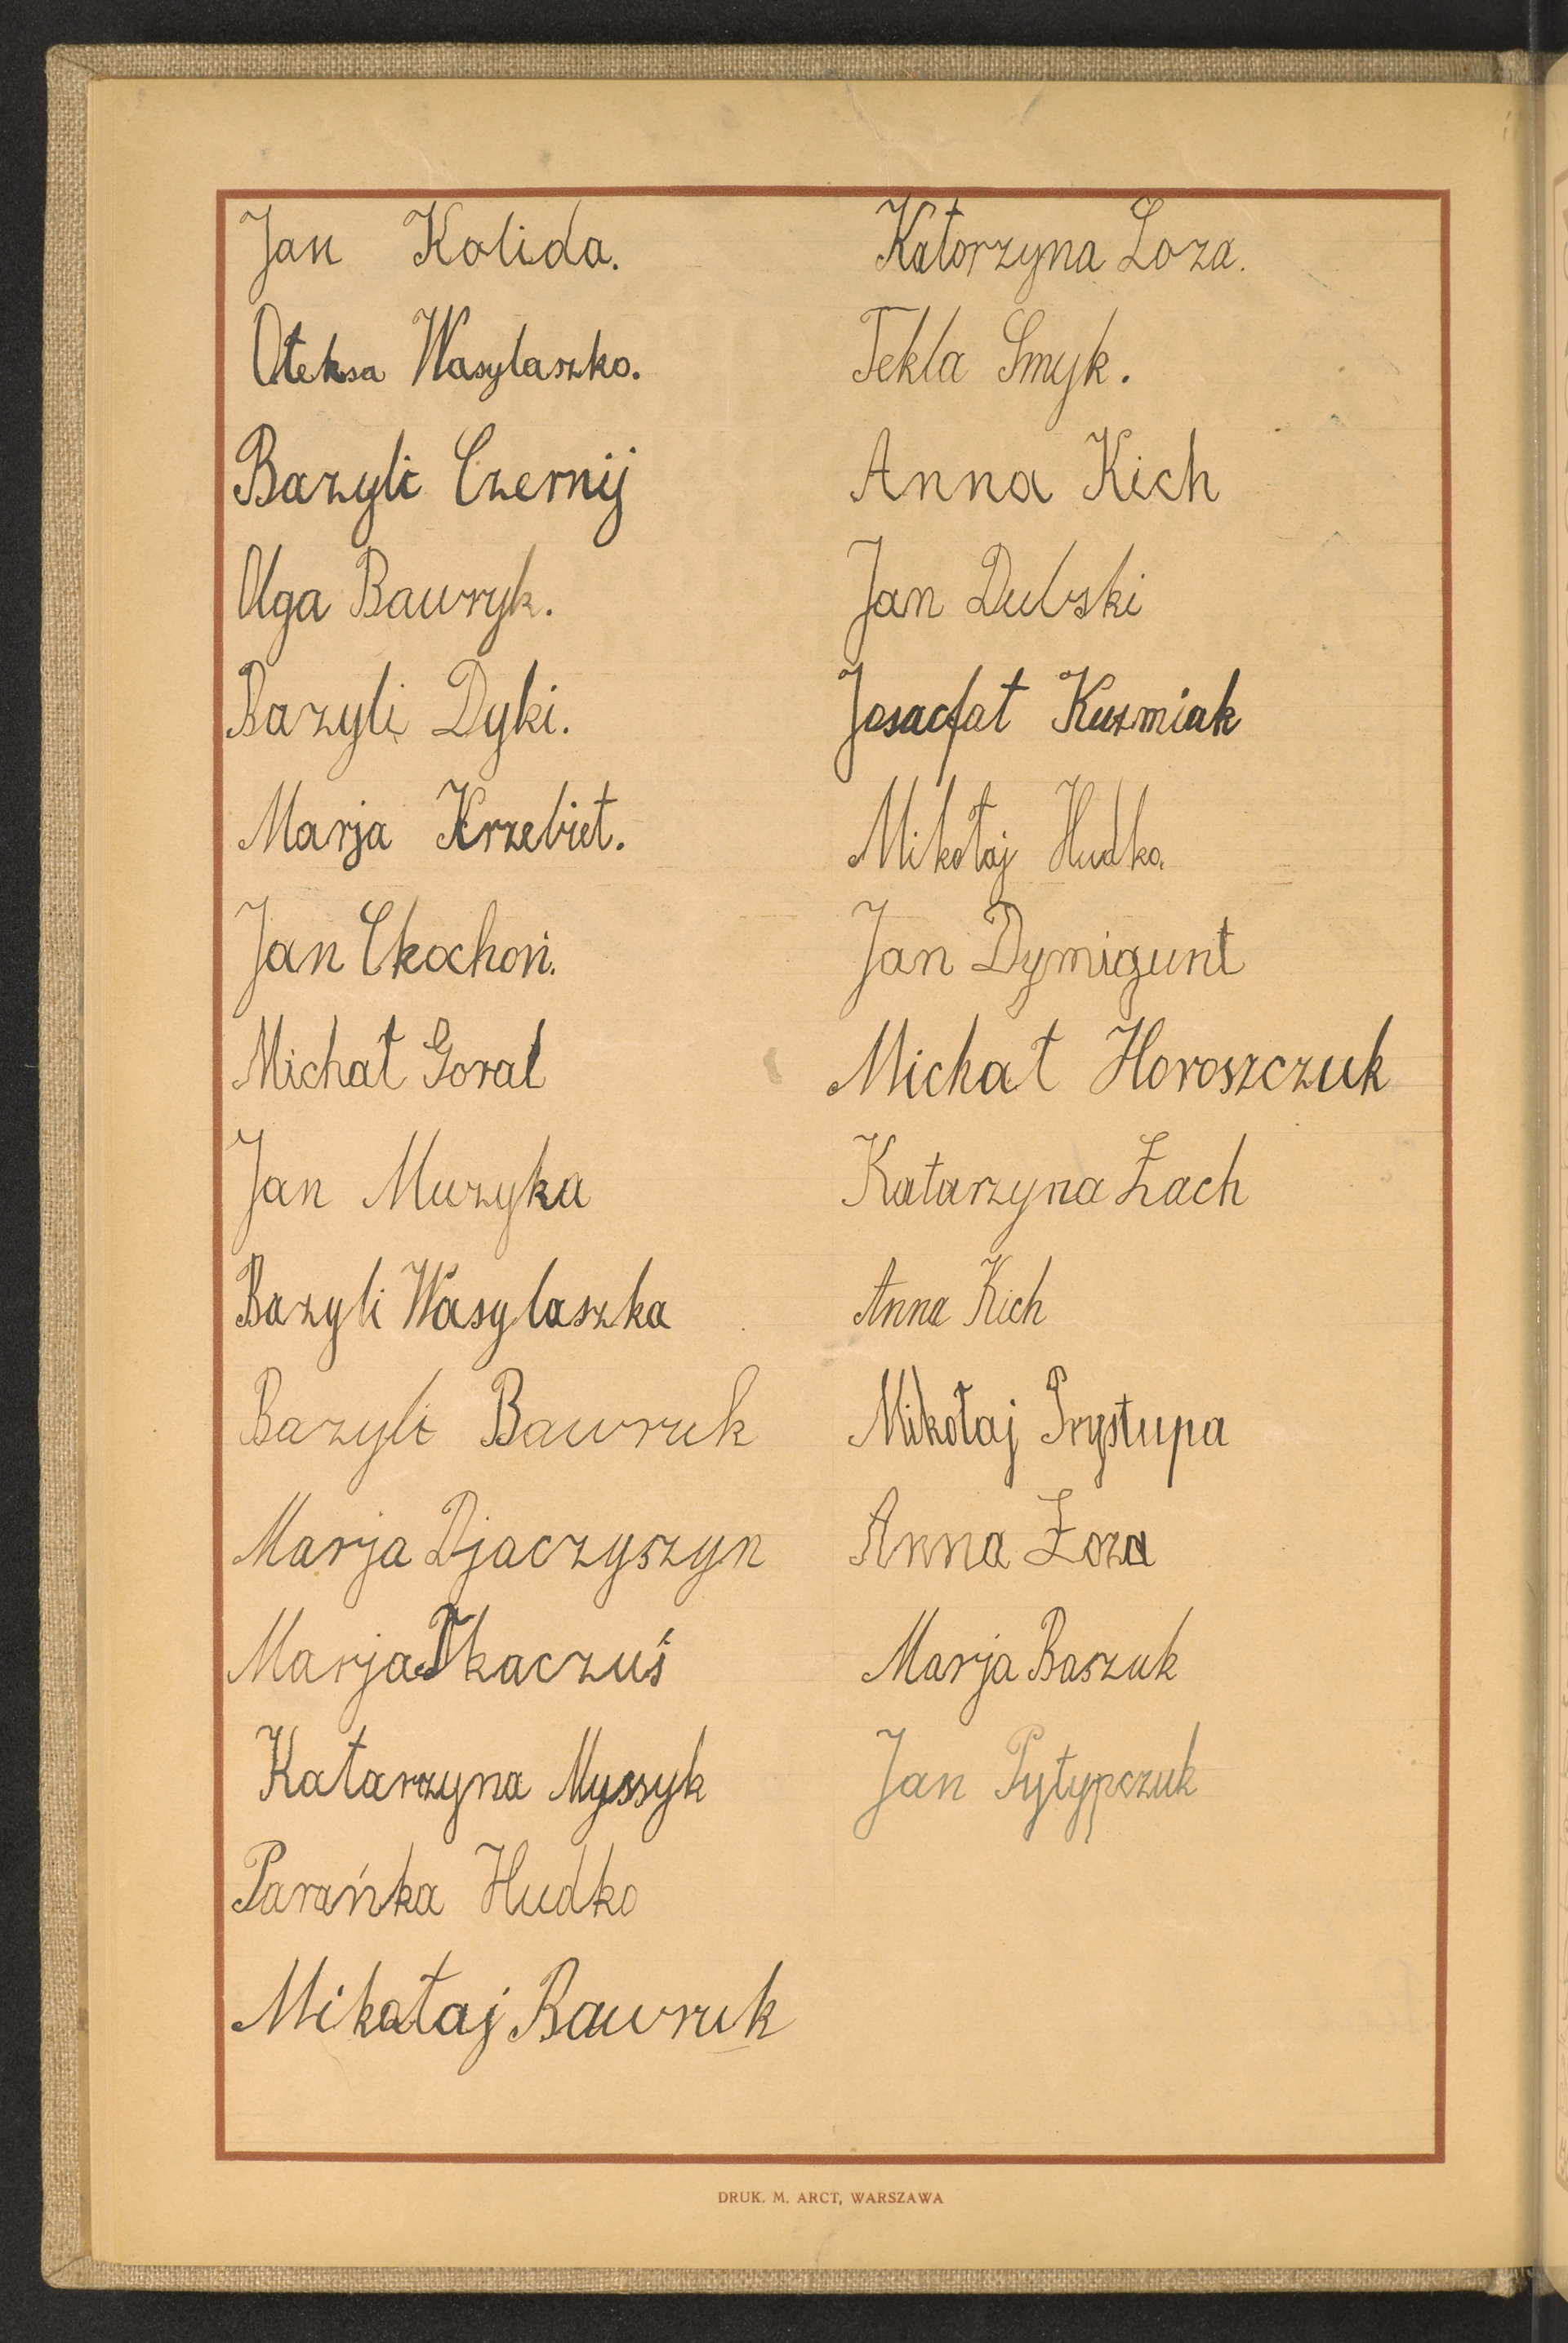 Jan Kolida.
Ołeksa Wasylaszko.
Bazyli Czernij
Olga Bawryk.
Bazyli Dyki.
Marja Krzebiet.
Jan Ckochoń.
Michał Goral
Jan Muzyka
Bazyli Wasylaszka
Bazyli Bawruk
Marja Djaczyszyn
Marja Tkaczuś
Katarzyna Myssyk
Parańka Hudko
Mikołaj Bawruk
Katorzyna Łoza.
Tekla Smyk.
Anna Kich
Jan Dubski
Josacfat Kuzmiak
Mikołaj Hudko.
Jan Dymigunt
Michał Horoszczuk
Katarzyna Łach
Anna Kich
Mikołaj Prystupa
Anna Łoza
Marja Baszuk
Jan Pytypczuk
DRUK. M. ARCT, WARSZAWA